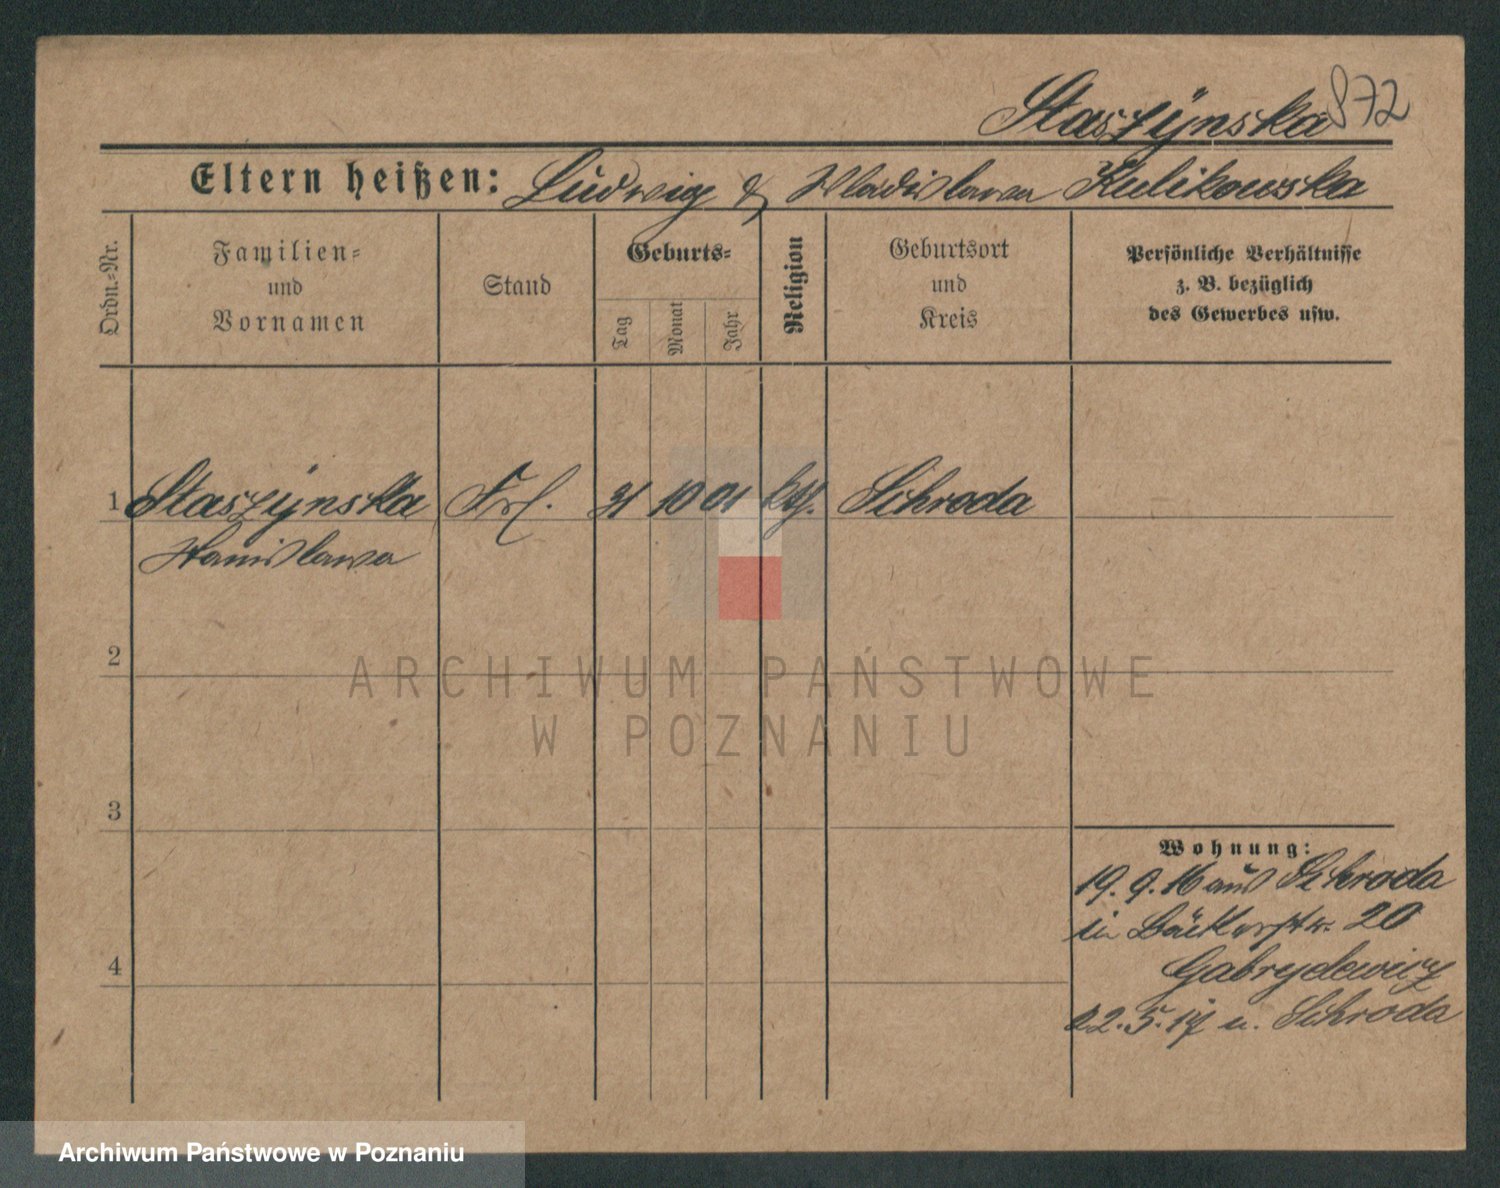 Staszÿnska 872
Eltern heißen: Ludwig & Wladislawa Kulikowska
Ordn.-Nr.
Familien-
und
Vornamen
Stand
Geburts-
Tag
Monat
Jahr
Religion
Geburtsort
und
Kreis
Persönliche Verhältnisse
z. B. bezüglich
des Gewerbes usw.
1 Staszÿnska Frl. 31 10 01 kth. Schroda
Stanislawa
2
3
4
Wohnung:
19.9.16 aus Schroda
in Bäckerstr. 20
Gabryelewicz
22.5.17 n. Schroda
ARCHIWUM PAŃSTWOWE
W POZNANIU
Archiwum Państwowe w Poznaniu